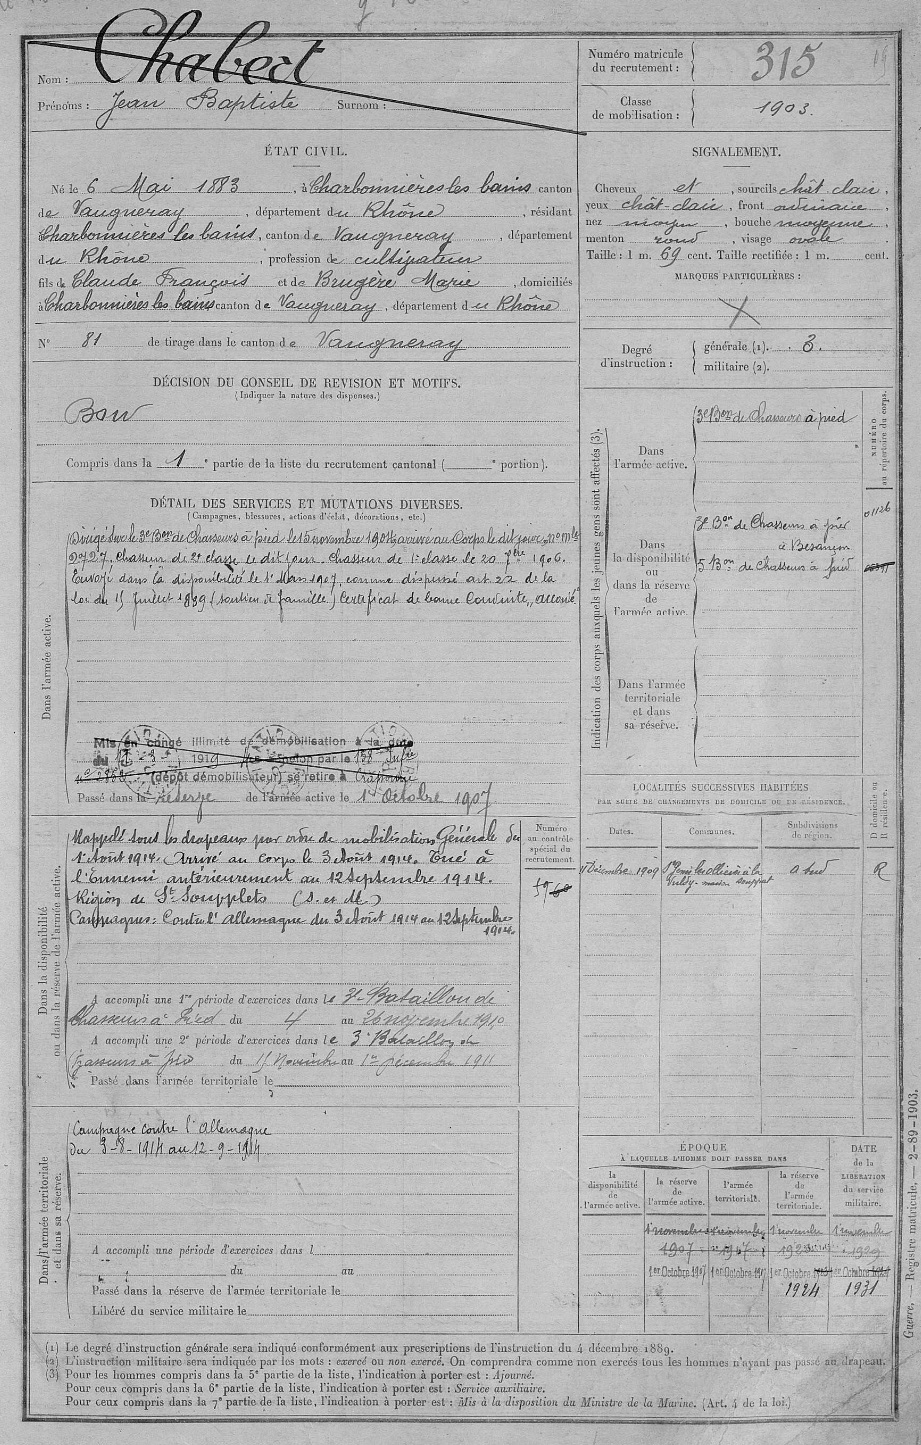 Nom : Chabert
Prénoms : Jean Baptiste Surnom :
Numéro matricule
du recrutement : 315
Classe
de mobilisation : 1903.
ÉTAT CIVIL.
Né le 6 Mai 1883, à Charbonnières les bains canton
de Vaugneray, département du Rhône, résidant
Charbonnières les bains, canton de Vaugneray, département
du Rhône, profession de cultivateur
fils de Claude François et de Brugère Marie, domiciliés
à Charbonnières les bains canton de Vaugneray, département du Rhône
N° 81 de tirage dans le canton de Vaugneray
SIGNALEMENT.
Cheveux et, sourcils chât clair,
yeux chât-clair, front ordinaire,
nez moyen, bouche moyenne,
menton rond, visage ovale.
Taille : 1 m. 69 cent. Taille rectifiée : 1 m. cent.
MARQUES PARTICULIÈRES :
X
Degré
d'instruction :
générale (1). 3.
militaire (2).
DÉCISION DU CONSEIL DE REVISION ET MOTIFS.
(Indiquer la nature des dispenses.)
Bon
Compris dans la 1e partie de la liste du recrutement cantonal ( e portion).
DÉTAIL DES SERVICES ET MUTATIONS DIVERSES.
(Campagnes, blessures, actions d'éclat, décorations, etc.)
Dans l'armée active.
Dirigé sur le 3e Bon de Chasseurs à pied le 15 novembre 1904 arrivé au Corps le dit jour, no mle
2727. Chasseur de 2e classe le dit jour. Chasseur de 1e classe le 20 7bre 1906.
Envoyé dans la disponibilité le 1er Mars 1907, comme dispensé art. 22 de la
loi du 15 Juillet 1889 (soutien de famille) Certificat de bonne Conduite,
Mis en congé illimité de démobilisation à la date
du 1919
(dépôt démobilisateur) se retire à
Passé dans la réserve de l'armée active le 1er Octobre 1907
Indication des corps auxquels les jeunes gens sont affectés (3).
NUMÉRO
au répertoire du corps.
Dans
l'armée active.
3e Bon de Chasseurs à pied
Dans
la disponibilité
ou
dans la réserve
de
l'armée active.
3e Bon de Chasseurs à pied
à Besançon
5 Bon de Chasseurs à pied
01126
Dans l'armée
territoriale
et dans
sa réserve.
Dans la disponibilité
ou dans la réserve de l'armée active.
Rappelé sous les drapeaux par ordre de mobilisation Générale du
1er Août 1914. Arrivé au corps le 3 Août 1914. Tué à
l'Ennemi antérieurement au 12 Septembre 1914.
Région de St Soupplets (S. et M.)
Campagnes : Contre l'Allemagne du 3 Août 1914 au 12 Septembre
1914.
A accompli une 1re période d'exercices dans le 3e Bataillon de
Chasseurs à Pied du 4 au 26 novembre 1910
A accompli une 2e période d'exercices dans le 3e Bataillon de
Chasseurs à pied du 15 Novembre au 1er Décembre 1911
Passé dans l'armée territoriale le
Numéro
au contrôle
spécial du
recrutement.
LOCALITÉS SUCCESSIVES HABITÉES
PAR SUITE DE CHANGEMENTS DE DOMICILE OU DE RÉSIDENCE.
Dates. Communes. Subdivisions
de région.
D domicile ou
R résidence.
Décembre 1909 R
Dans l'armée territoriale
et dans sa réserve.
Campagne contre l'Allemagne
du 3-8-1914 au 12-9-1914
A accompli une période d'exercices dans l
du au
Passé dans la réserve de l'armée territoriale le
Libéré du service militaire le
ÉPOQUE
À LAQUELLE L'HOMME DOIT PASSER DANS
la
disponibilité
de
l'armée active.
la réserve
de
l'armée active.
l'armée
territoriale.
la réserve
de
l'armée
territoriale.
DATE
de la
LIBÉRATION
du service
militaire.
1er novembre 1er novembre 1er novembre 1er novembre
1907 1929
1er Octobre 1907 1er Octobre 1er Octobre 1er Octobre
1924 1931
(1) Le degré d'instruction générale sera indiqué conformément aux prescriptions de l'instruction du 4 décembre 1889.
(2) L'instruction militaire sera indiquée par les mots : exercé ou non exercé. On comprendra comme non exercés tous les hommes n'ayant pas passé au drapeau.
(3) Pour les hommes compris dans la 5e partie de la liste, l'indication à porter est : Ajourné.
Pour ceux compris dans la 6e partie de la liste, l'indication à porter est : Service auxiliaire.
Pour ceux compris dans la 7e partie de la liste, l'indication à porter est : Mis à la disposition du Ministre de la Marine. (Art. 4 de la loi.)
Guerre. — Registre matricule. — 2-89-1903.